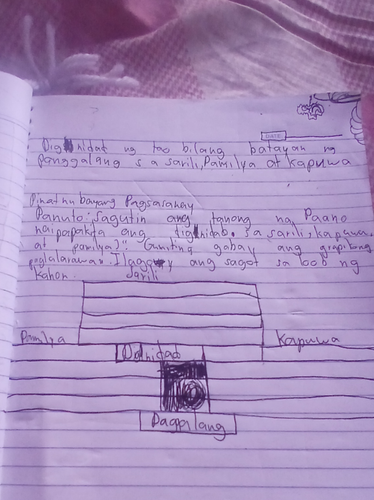 DATE:
Dignidat ng tao bilang batayan ng
panggalang sa sarili, Pamilya at Kapuwa
Pinatnubayang Pagsasanay
Panuto: Sagutin ang tanong na, Paano
naipapakita ang dignidad sa sarili, kapuwa
at pamilya?" Gawing gabay ang grapikong
paglalarawan. Ilagay ang sagot sa loob ng
kahon.
Sarili
Pamilya
Kapuwa
Dignidad
Paggalang